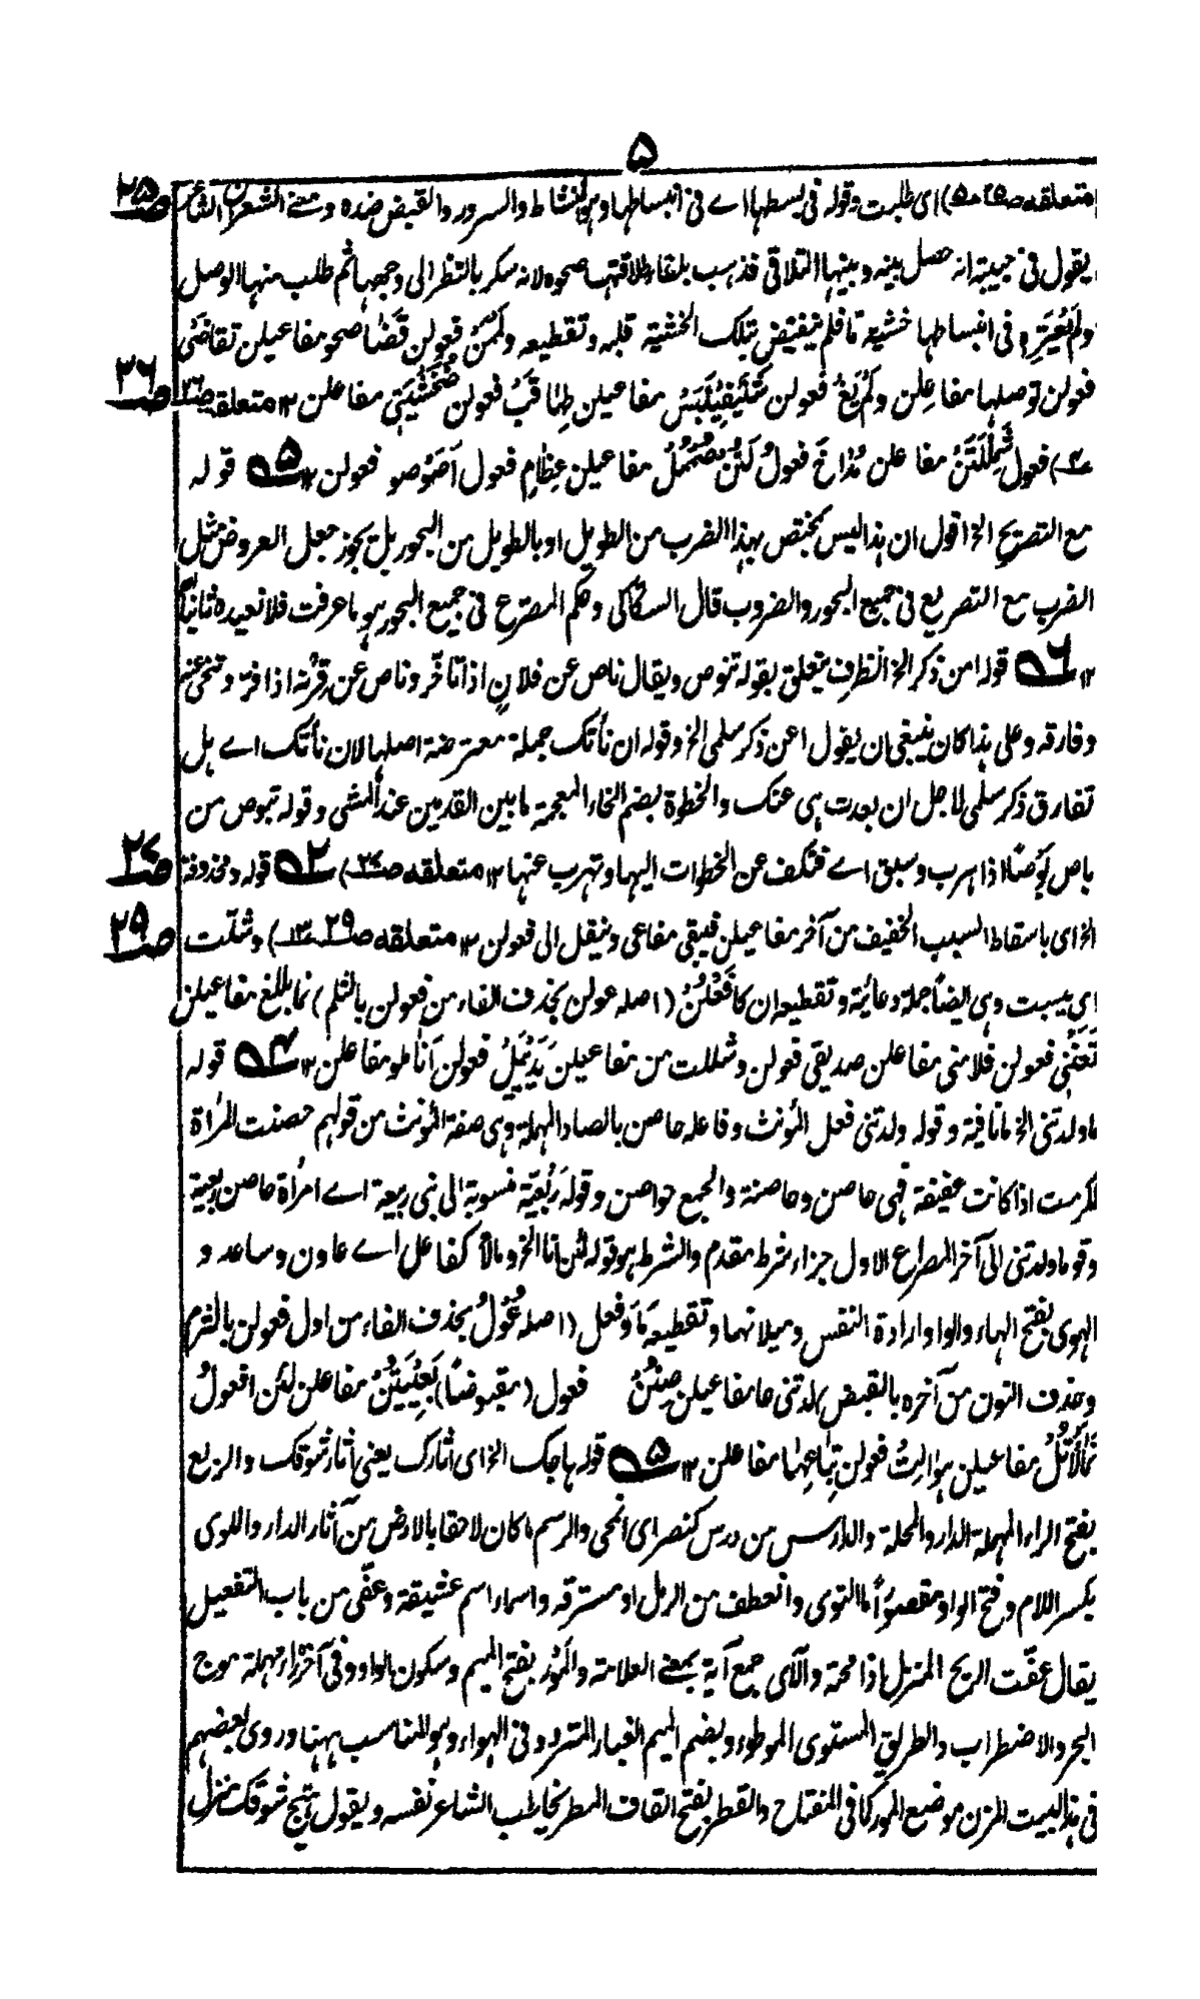 ۵
(متعلقه ص۲۵ ه۵) ای طلبت وقوله فی بسطها اے فی انبساطها وہو النشاط والسرور والقبض ضده ومعنے الشعر ان الشاعر ص۲۵
يقول فی حبيبته انه حصل بينه وبينها التلاقی فذهب بلقاء وطلاقتها صحوه لانه سكر بالنظر الی وجهها ثم طلب منها الوصل
ولم يعتره فی انبساطها خشية ما فلم ينقبض بتلک الخشية قلبه وتقطيعه فعولن صحو مفاعيلن تقاضی
فعولن توصلها مفاعلن ولم يغ فعولن مفاعيلن طها قب فعولن مفاعلن ۱۲ متعلقه ص۲۶ ص۲۶
فعول مفاعلن فعول مفاعيلن عظام فعول فعولن ۱۲ ۵ قوله
مع التصريع الخ اقول ان هذا ليس بمختص بهذا الضرب من الطويل او بالطويل من البحور بل يجوز جعل العروض مثل
الضرب مع التصريع فی جميع البحور والضروب قال السكاكی وحكم المصرع فی جميع البحور هو ما عرفت فلا نعيده ثانيًا
۱۲ ۶ قوله امن ذكر الخ الظرف يتعلق بقوله تنوص ويقال ناص عن فلانٍ اذا تاخّر وناص عن قرنه اذا فرّ وتنحی عنه
وفارقه وعلی هذا كان ينبغی ان يقول اعن ذكر سلمی الخ وقوله ان نأتک جملة معترضة اصلها لان نأتک اے هل
تفارق ذكر سلمی لاجل ان بعدت هی عنک والخطوة بضم الخاء المعجمة ما بين القدمين عند المشی وقوله تبوص من
باص بوصًا اذا هرب وسبق اے فتكف عن الخطوات اليها وتهرب عنها ۱۲ متعلقه ص۲۷) ۲ قوله ومحذوفة ص۲۷
الخ ای باسقاط السبب الخفيف من آخر مفاعيلن فيبقی مفاعی وينقل الی فعولن ۱۲ متعلقه ص۲۹ ) وشلّت ص۲۹
ای يبست وهی ايضاً جملة دعائية وتقطيعه ان كا فَعْلُنْ (اصله عولن بحذف الفاء من فعولن بالثلم) نما بللغ مفاعيلن
تَعَنّی فعولن فلامنی مفاعلن صديقی فعولن وشللت من مفاعيلن فعولن اناملو مفاعلن ۱۲ ۴ قوله
ما ولدتنی الخ ما نافية وقوله ولدتنی فعل المؤنث وفاعله حاصن بالصاد المهملة وهی صفة المؤنث من قولهم حصنت المرأة
لكرمت اذا كانت عفيفة فهی حاصن وحاصنة والجمع حواصن وقوله رَبْعيّة منسوبة الی بنی ربيعة اے امرأة حاصن ربعية
وقو ما ولدتنی الی آخر المصراع الاول جزاء شرط مقدم والشرط هو قوله لئن انا الخ ومالأ كفاعل اے عاون وساعد و
الهوی بفتح الهاء والواو ارادة النفس وميلانها وتقطيعه مَا وَ فعل (اصله عُولُ بحذف الفاء من اول فعولن بالثرم
وحذف النون من آخره بالقبض) لدتنی حا مفاعيلن صِنُنْ فعول (مقبوضًا) مفاعلن لئن ا فعولُ
مفاعيلن هوالِتْ فعولن تباعِها مفاعلن ۱۲ ۵ قوله هاجک الخ ای اثارک يعنی أثار شوقک والربع
بفتح الراء المهملة الدار والمحلة والدارس من درس كنصر ای انمحی والرسم ما كان لاحقا بالارض من آثار الدار واللوی
بكسر اللام وفتح الواو مقصوراً ما التوی وانعطف من الرمل او مسترقه واسماء اسم عشيقة وعفّی من باب التفعيل
يقال عفّت الريح المنزل اذا محته والآی جمع آية بمعنے العلامة والمَوْر بفتح الميم وسكون الواو وفی آخره راء مهملة موج
البحر والاضطراب والطريق المستوی الموطوء وبضم الميم الغبار المتردد فی الهواء وهو المناسب ههنا وروی بعضهم
فی هذا البيت المزن موضع المور كما فی المفتاح والقطر بفتح القاف المطر يخاطب الشاعر نفسه ويقول هيج شوقک منزل